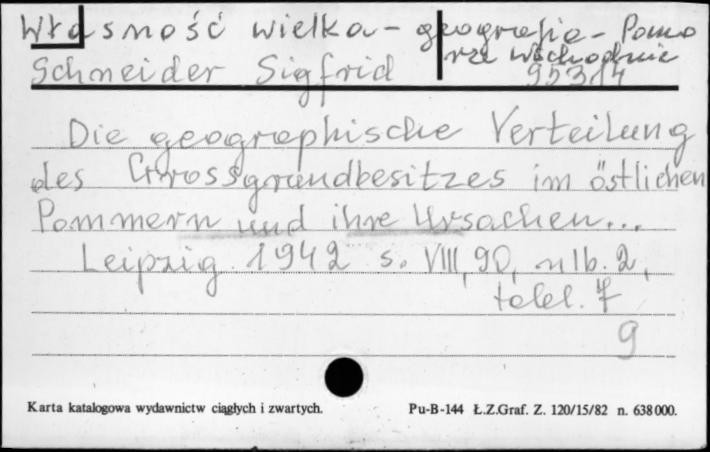 Własność wielka - geografia - Pomo
rze Wschodnie
Schneider Sigfrid 95314
Die geographische Verteilung
des Grossgrundbesitzes im östlichen
Pommern und ihre Ursachen...
Leipzig 1942 s. VIII, 90, nlb. 2,
tabl. 7
9
Karta katalogowa wydawnictw ciągłych i zwartych. Pu-B-144 Ł.Z.Graf. Z. 120/15/82 n. 638000.